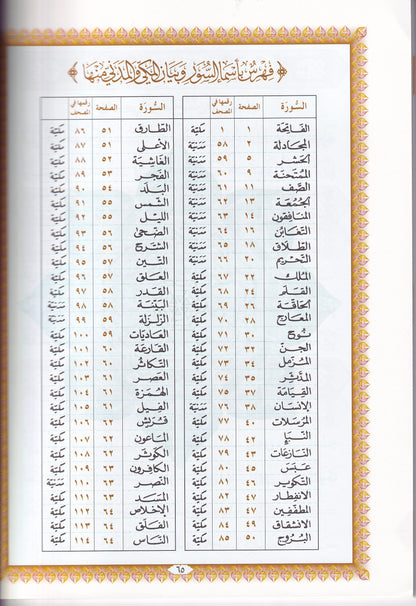 فهرس بأسماء السور وبيان المكي والمدني منها
السورة الصفحة رقمها في المصحف
الفاتحة ١ ١ مكية
المجادلة ٢ ٥٨ مدنية
الحشر ٥ ٥٩ مدنية
الممتحنة ٩ ٦٠ مدنية
الصف ١١ ٦١ مدنية
الجمعة ١٣ ٦٢ مدنية
المنافقون ١٤ ٦٣ مدنية
التغابن ١٦ ٦٤ مدنية
الطلاق ١٨ ٦٥ مدنية
التحريم ٢٠ ٦٦ مدنية
الملك ٢٢ ٦٧ مكية
القلم ٢٤ ٦٨ مكية
الحاقة ٢٦ ٦٩ مكية
المعارج ٢٨ ٧٠ مكية
نوح ٣٠ ٧١ مكية
الجن ٣٢ ٧٢ مكية
المزمل ٣٤ ٧٣ مكية
المدثر ٣٥ ٧٤ مكية
القيامة ٣٧ ٧٥ مكية
الإنسان ٣٨ ٧٦ مدنية
المرسلات ٤٠ ٧٧ مكية
النبإ ٤٢ ٧٨ مكية
النازعات ٤٣ ٧٩ مكية
عبس ٤٥ ٨٠ مكية
التكوير ٤٦ ٨١ مكية
الانفطار ٤٧ ٨٢ مكية
المطففين ٤٧ ٨٣ مكية
الانشقاق ٤٩ ٨٤ مكية
البروج ٥٠ ٨٥ مكية
السورة الصفحة رقمها في المصحف
الطارق ٥١ ٨٦ مكية
الأعلى ٥١ ٨٧ مكية
الغاشية ٥٢ ٨٨ مكية
الفجر ٥٣ ٨٩ مكية
البلد ٥٤ ٩٠ مكية
الشمس ٥٥ ٩١ مكية
الليل ٥٥ ٩٢ مكية
الضحى ٥٦ ٩٣ مكية
الشرح ٥٦ ٩٤ مكية
التين ٥٧ ٩٥ مكية
العلق ٥٧ ٩٦ مكية
القدر ٥٨ ٩٧ مكية
البينة ٥٨ ٩٨ مدنية
الزلزلة ٥٩ ٩٩ مدنية
العاديات ٥٩ ١٠٠ مكية
القارعة ٦٠ ١٠١ مكية
التكاثر ٦٠ ١٠٢ مكية
العصر ٦١ ١٠٣ مكية
الهمزة ٦١ ١٠٤ مكية
الفيل ٦١ ١٠٥ مكية
قريش ٦٢ ١٠٦ مكية
الماعون ٦٢ ١٠٧ مكية
الكوثر ٦٢ ١٠٨ مكية
الكافرون ٦٣ ١٠٩ مكية
النصر ٦٣ ١١٠ مدنية
المسد ٦٣ ١١١ مكية
الإخلاص ٦٤ ١١٢ مكية
الفلق ٦٤ ١١٣ مكية
الناس ٦٤ ١١٤ مكية
٦٥